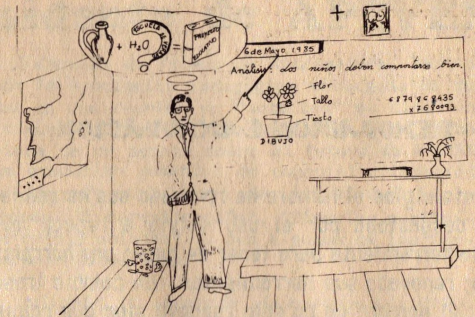 + H₂O ESCUELA = PROYECTO
EDUCATIVO
6 de Mayo 1985
Análisis: dos niños deben comportarse bien.
Flor
Tallo
Tiesto
DIBUJO
6879868435
x7680093